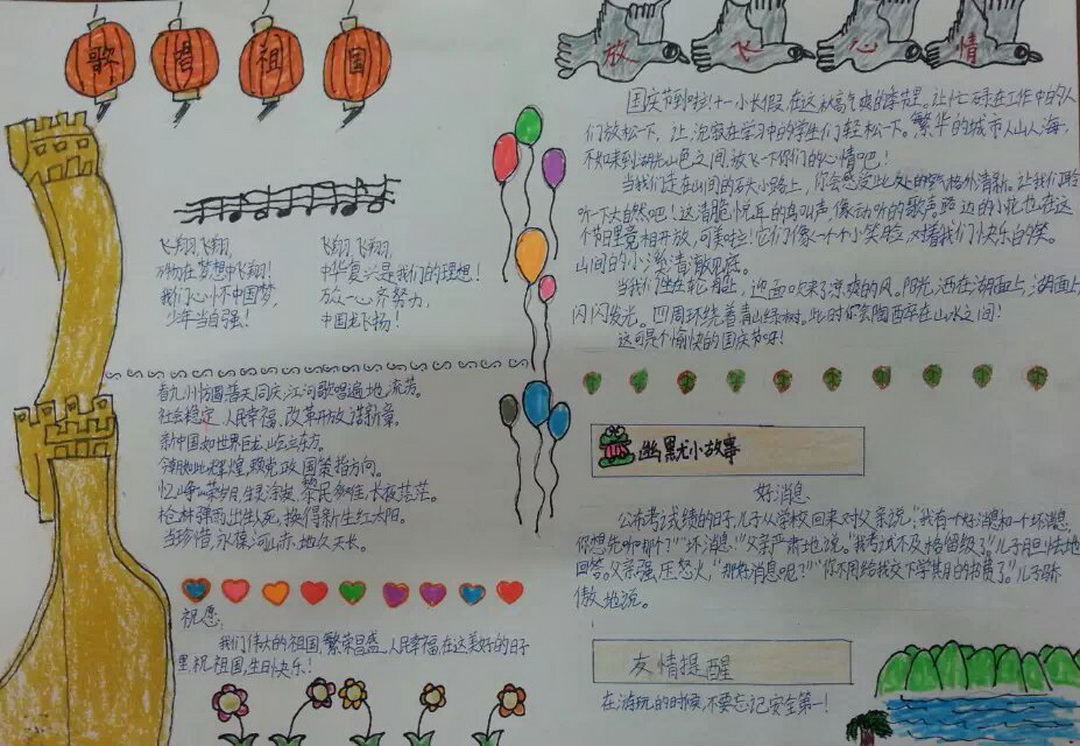 歌唱祖国
飞翔,飞翔,
翱翔在梦想中飞翔!
我们心怀中国梦,
少年当自强!
飞翔,飞翔,
中华复兴是我们的理想!
万众一心齐努力,
中国龙飞扬!
看九州方圆普天同庆,江河歌唱遍地流芳。
社会稳定人民幸福,改革开放谱新章。
新中国如世界巨龙,屹立东方。
辉煌,颂党政国策指方向。
忆峥嵘岁月,生灵涂炭,黎民多难,长夜茫茫。
枪林弹雨,出生入死,换得新生红太阳。
当珍惜,永葆河山赤,地久天长。
祝愿:
我们伟大的祖国,繁荣昌盛,人民幸福,在这美好的日子
里,祝祖国,生日快乐!
放飞心情
国庆节到啦!十一小长假,在这秋高气爽的季节里。让忙碌在工作中的人
们放松一下,让沉寂在学习中的学生们轻松一下。繁华的城市人山人海,
不如来到湖光山色之间,放飞一下你们的心情吧!
当我们走在山间的石头小路上,你会感受此处的空气格外清新。让我们聆
听一下大自然吧!这清脆悦耳的鸟叫声,像动听的歌声。路边的小花也在这
个节日里竞相开放,可美啦!它们像一个个小笑脸,对着我们快乐的笑。
山间的小溪清澈见底。
当我们坐在轮船上,迎面吹来了凉爽的风。阳光洒在湖面上,湖面上
闪闪发光。四周环绕着青山绿树。此时你会陶醉在山水之间!
这可是个愉快的国庆节呀!
幽默小故事
好消息
公布考试成绩的日子,儿子从学校回来对父亲说:“我有一个好消息和一个坏消息,
你想先听哪个?”“坏消息!”父亲严肃地说。“我考试不及格留级了。”儿子胆怯地
回答。父亲强压怒火,“那好消息呢?”“你不用给我交下学期的书费了。”儿子骄
傲地说。
友情提醒
在游玩的时候,不要忘记安全第一!